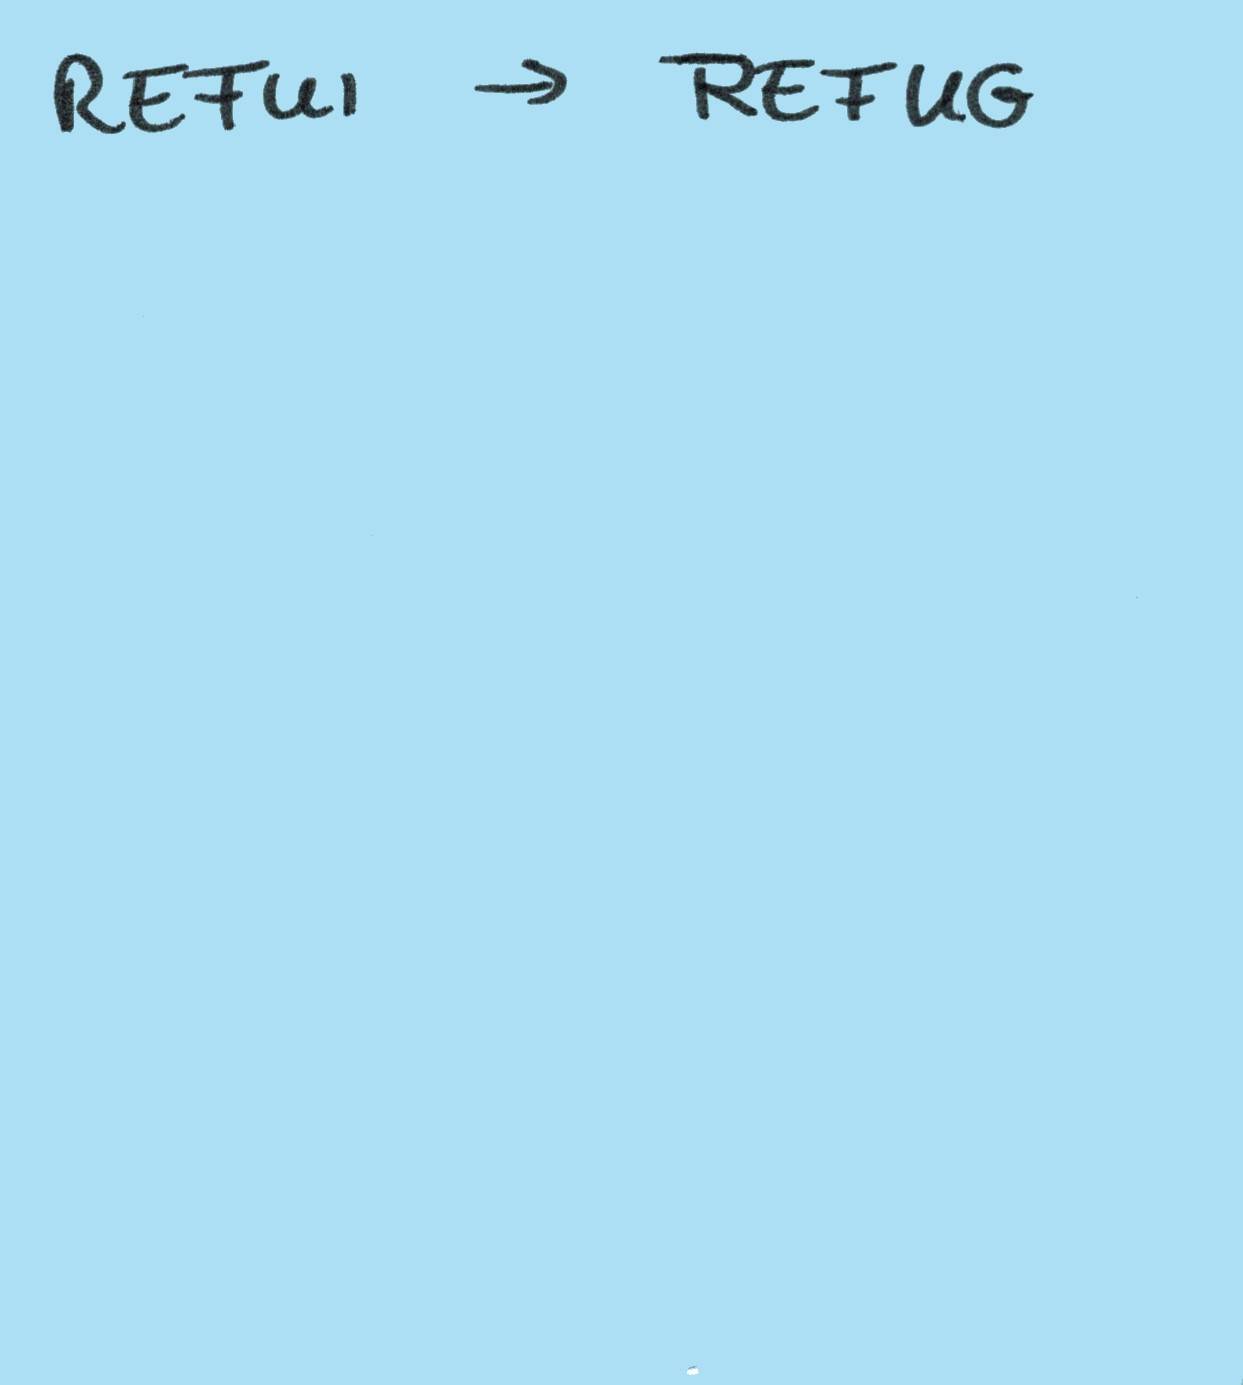 REFUI → REFUG